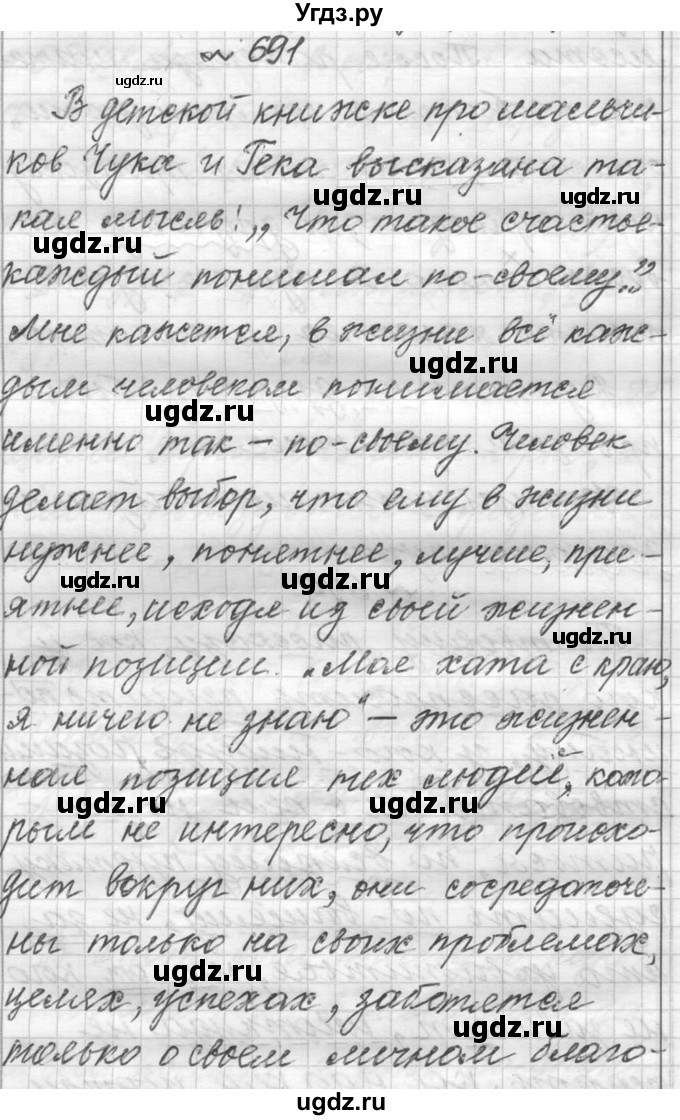 Угдз.ру
№ 691
ugdz.ru
В детской книжке про мальчи-
ков Чука и Гека высказана та-
ugdz.ru ugdz.ru
кая мысль: „Что такое счастье-
ugdz.ru ugdz.ru
каждый понимал по-своему."
Мне кажется, в жизни всё каж-
ugdz.ru
дым человеком понимается
ugdz.ru
именно так – по-своему. Человек
делает выбор, что ему в жизни
нужнее, понятнее, лучше, при-
ugdz.ru ugdz.ru
ятнее, исходя из своей жизнен-
ugdz.ru
ной позиции. „Моя хата с краю,
я ничего не знаю" – это жизнен-
ная позиция тех людей, кото-
ugdz.ru ugdz.ru
рым не интересно, что происхо-
дит вокруг них, они сосредоточе-
ны только на своих проблемах,
ugdz.ru
целях, успехах, заботятся
ugdz.ru
только о своем личном благо-
ugdz.ru